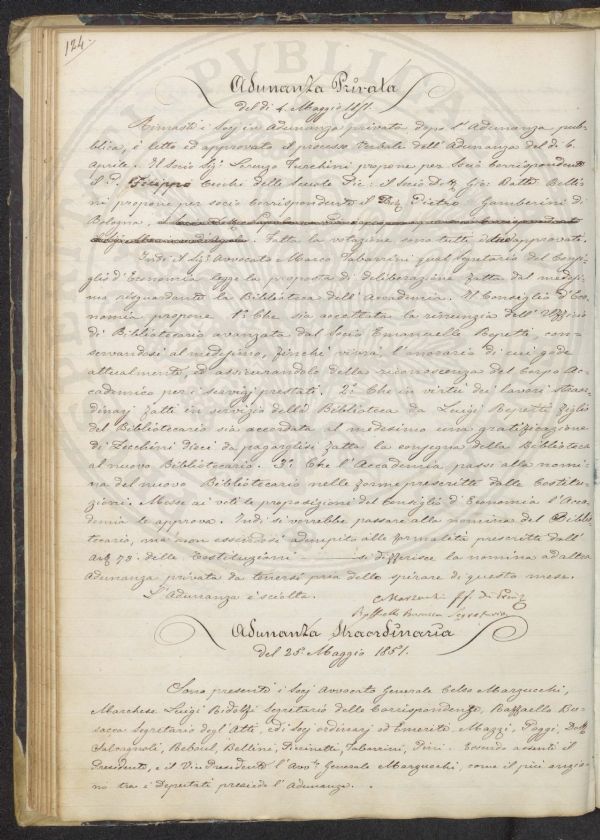 124.
Adunanza Privata
del dì 4 Maggio 1851.
Rimasti i Socj in Adunanza privata dopo l'Adunanza pub-
blica, è letto ed approvato il processo verbale dell'Adunanza del dì 6.
Aprile. Il Socio Sig. Lorenzo Turchini propone per Socio Corrispondente
il P. Filippo Cecchi delle Scuole Pie: il Socio Dott. Gio: Batta Bellini
ni propone per socio corrispondente il Pietro Gamberini di
Bologna. Fatta la votazione sono tutti approvati.
Indi il Sig. Avvocato Marco Tabarrini qual Segretario del Consi-
glio d'Economia legge la proposta di deliberazione fatta dal medesi-
mo risguardante la Biblioteca dell'Accademia. Il Consiglio d'Eco-
nomia propone 1.° Che sia accettata la rinunzia dell'Uffizio
di Bibliotecario avanzata dal Socio Emanuelle Repetti con-
servandosi al medesimo, finchè vivrà l'onorario di cui gode
attualmente, ed assicurandolo della riconoscenza del Corpo Ac-
cademico per i servigj prestati. 2.° Che in virtù dei lavori straor-
dinarj fatti in servizio della Biblioteca da Luigi Repetti figlio
del Bibliotecario sia accordata al medesimo una gratificazione
di Zecchini dieci da pagarglisi fatta la consegna della Biblioteca
al nuovo Bibliotecario. 3.° Che l'Accademia passi alla nomi-
na del nuovo Bibliotecario nelle forme prescritte dalle Costitu-
zioni. Messe ai voti le proposizioni del Consiglio d'Economia l'Acca-
demia le approva. Indi si vorrebbe passare alla nomina del Biblio-
tecario, ma non essendosi adempito alle formalità prescritte dall'
Art. 73. delle Costituzioni si differisce la nomina ad altra
Adunanza privata da tenersi pria dello spirare di questo mese.
L'Adunanza è sciolta.
ff. di
Raffaello Busacca Segretario
Adunanza Straordinaria
del 25 Maggio 1851.
Sono presenti i Socj Avvocato Generale Celso Marzucchi,
Marchese Luigi Ridolfi Segretario delle Corrispondenze, Raffaello Bu-
sacca Segretario degl'Atti, ed i Socj ordinarj ed Emeriti, Mazzi, Poggi, Dott.
Salvagnoli, Reboul, Bellini, Tabarrini, Peri. Essendo assenti il
Presidente, e il Vice Presidente l'Avv. Generale Marzucchi, come il più anzia-
no tra i Deputati presiede l'Adunanza.